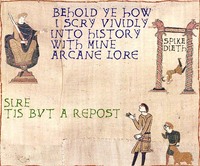 BEHOLD YE HOW
I SCRY VIVIDLY
INTO HISTORY
WITH MINE
ARCANE LORE
SPIKE
DIETH
SIRE
TIS BVT A REPOST